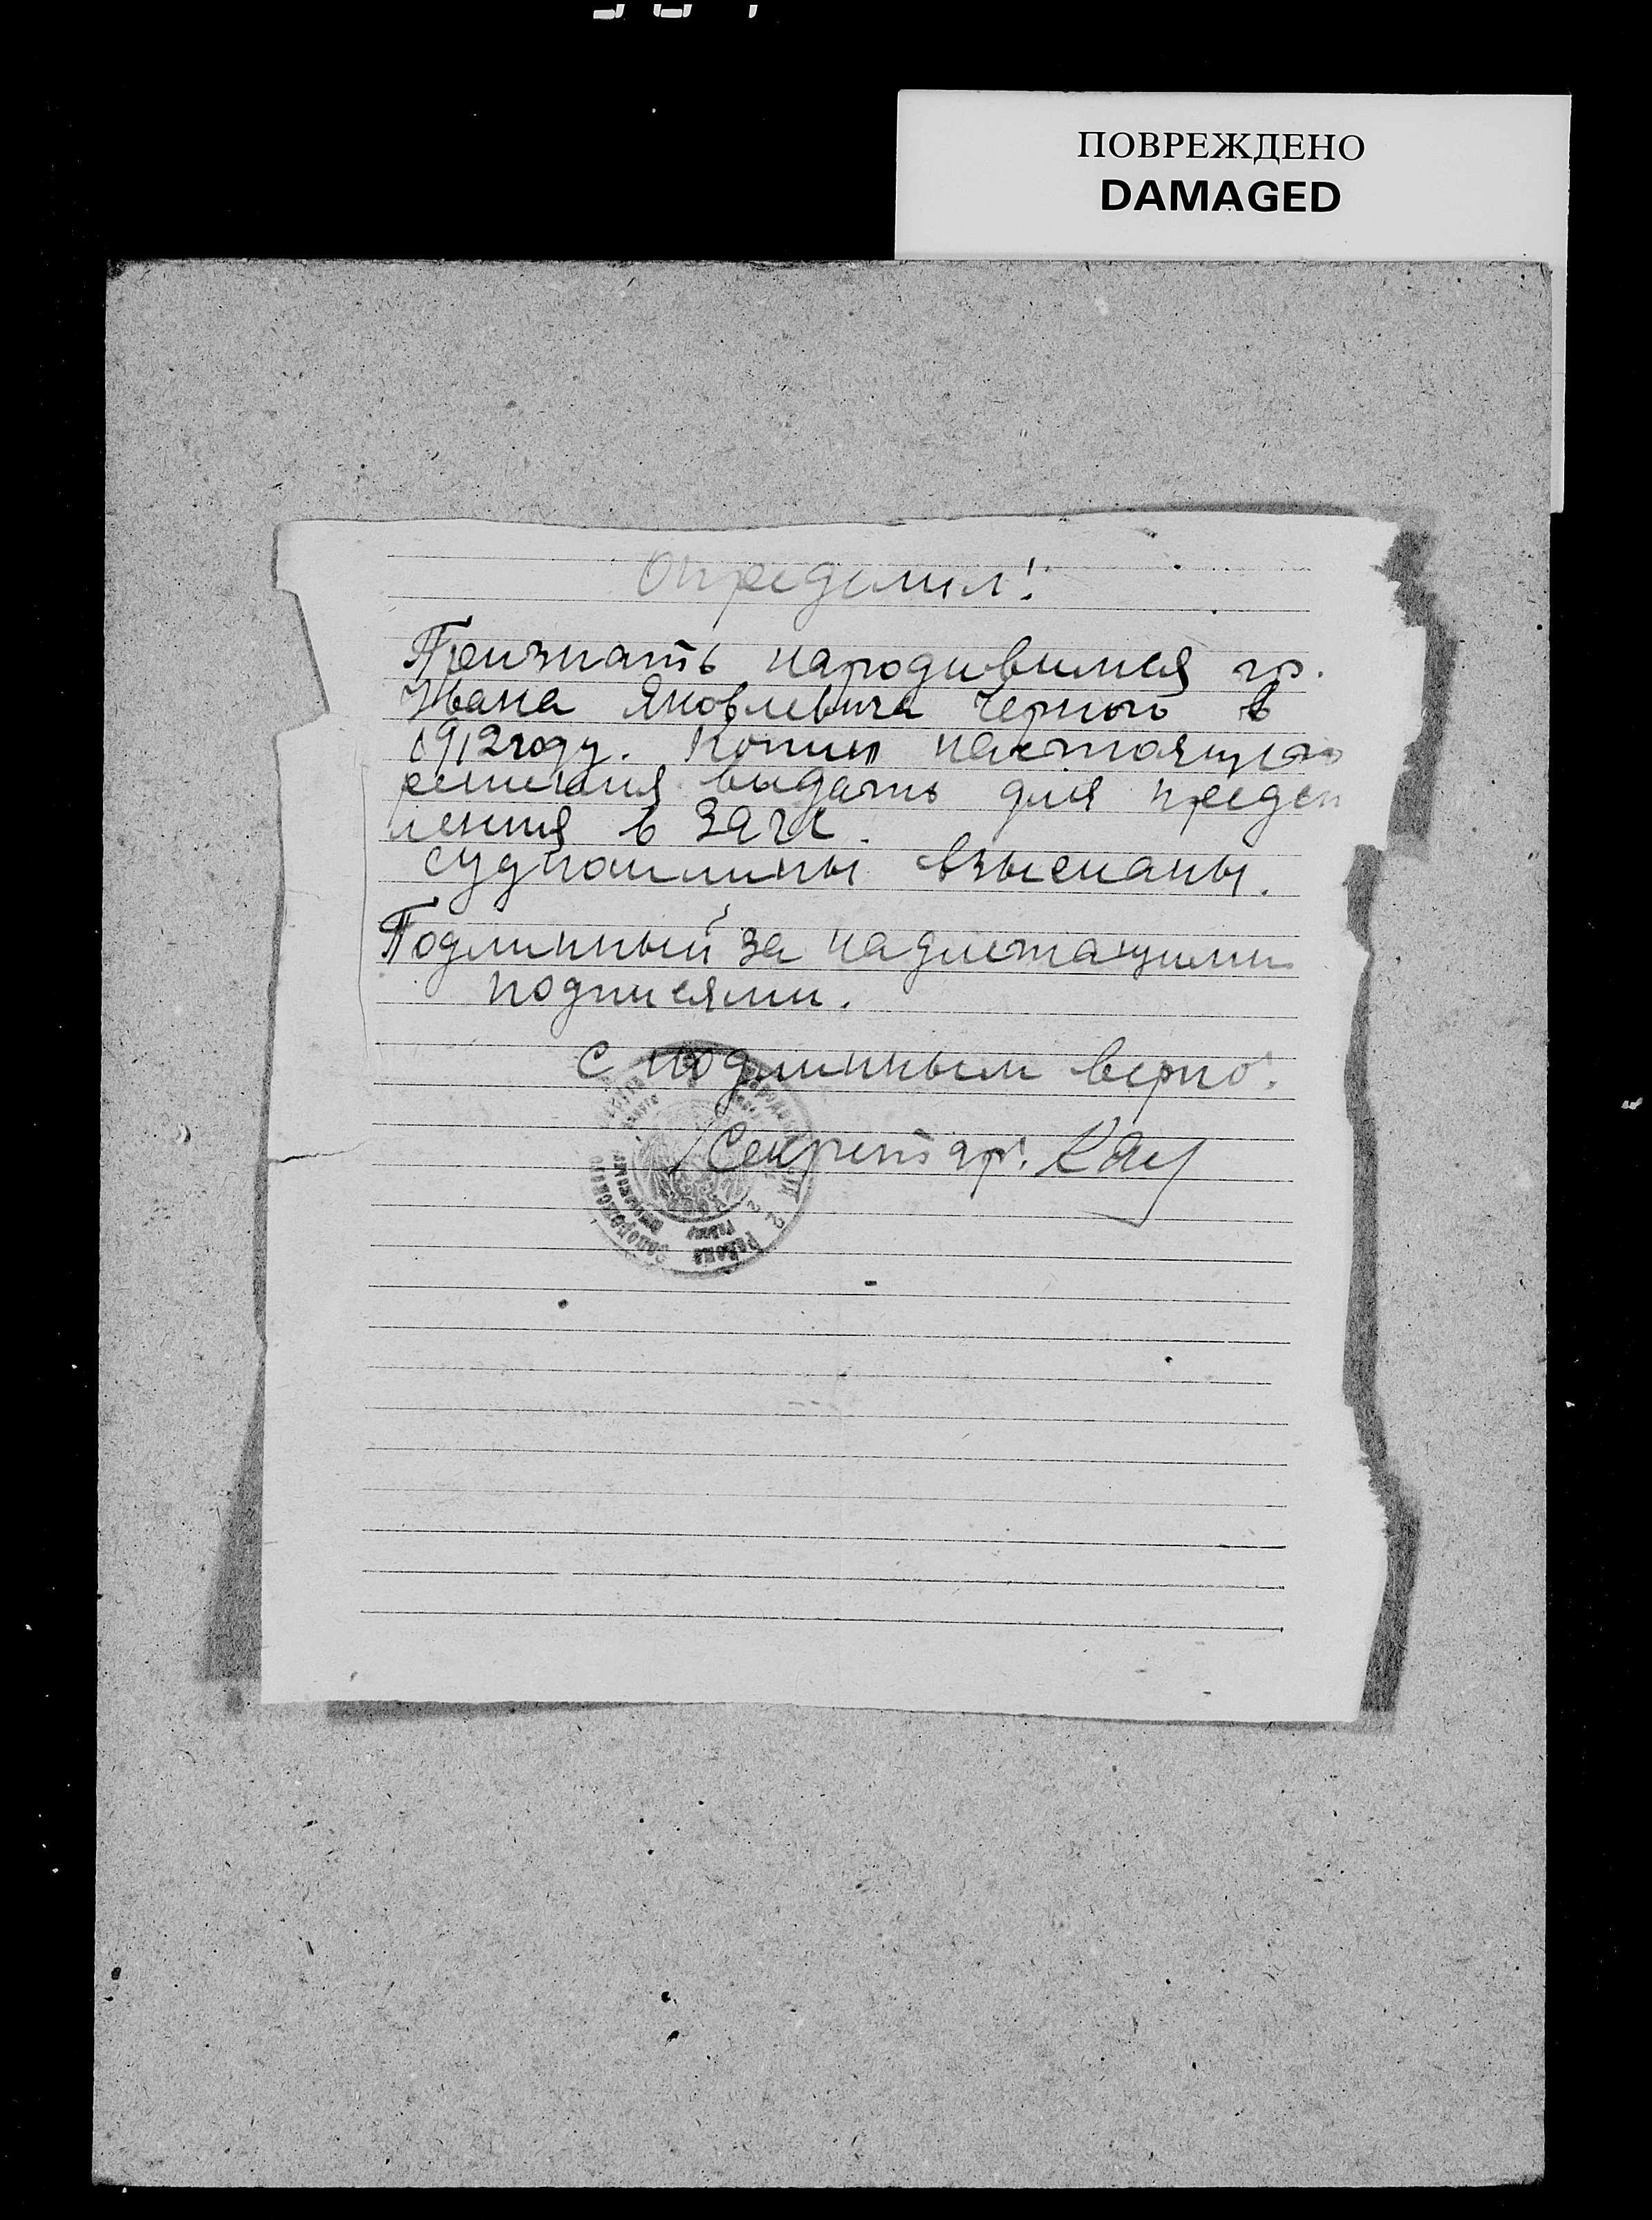 ПОВРЕЖДЕНО
DAMAGED
Определил:
Признать народившимся гр.
Ивана Яковлевича Черного в
1912 году. Копию настоящего
решения выдать для предст
ления в Загс.
судпошлины взысканы.
Подлинный за надлежащими
подписями.
С подлинным верно:
Секретарь:
Района